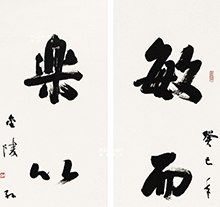 敏而
癸巳年
樂以
金陵